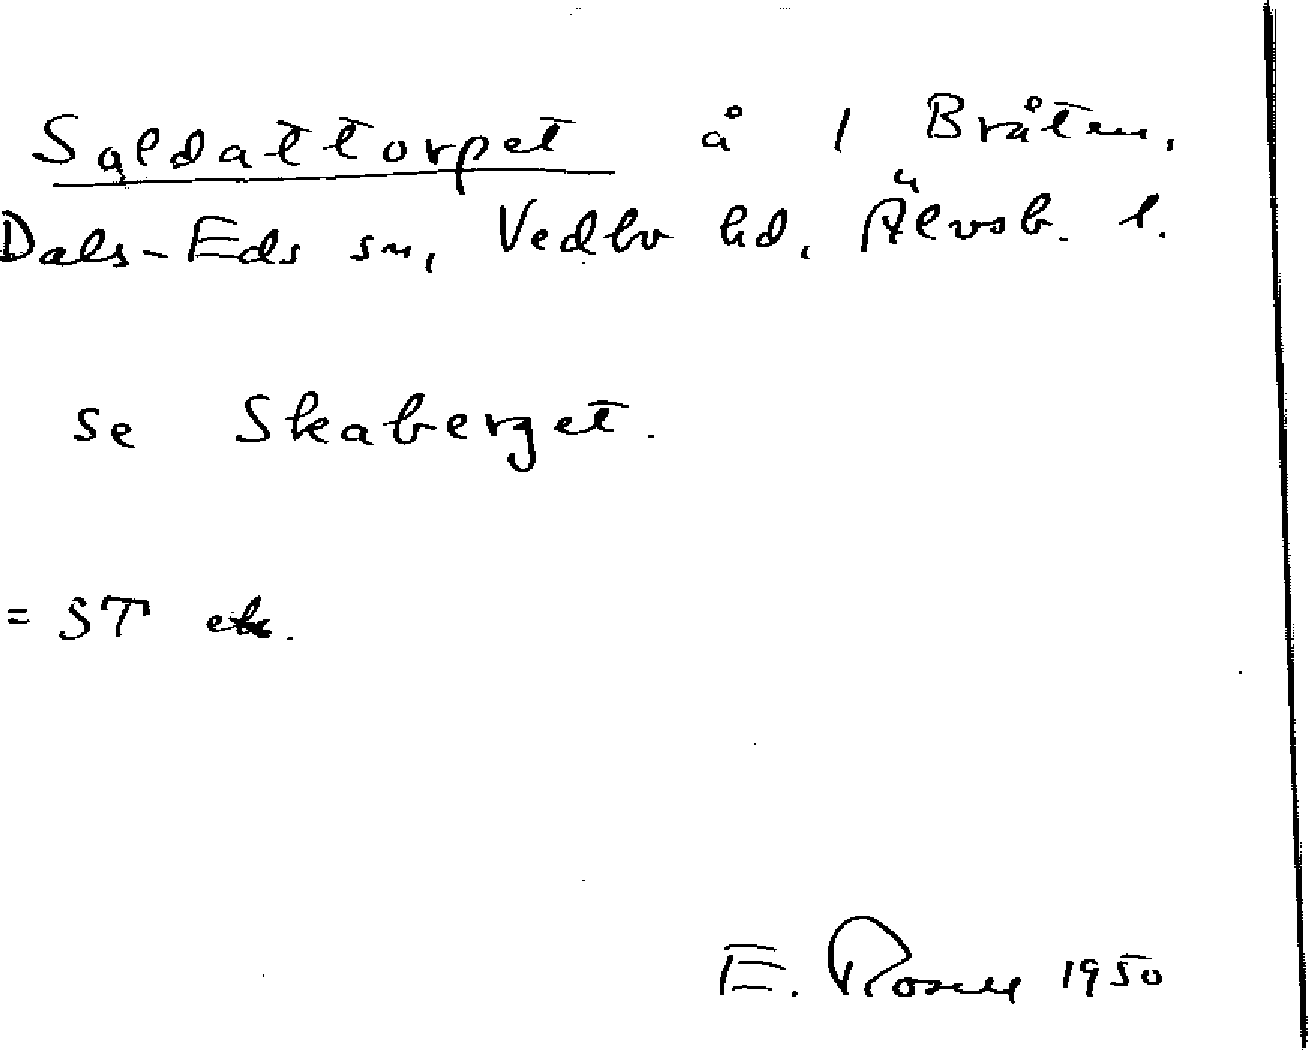 Saldattorpet å 1 Bråten,
Dals-Eds sn, Vedbo hd, Älvsb. l.
se Skaberget.
= ST etc.
E. Rosell 1950